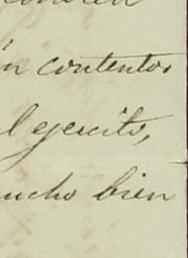 án contentos
l ejercito,
ucho bien